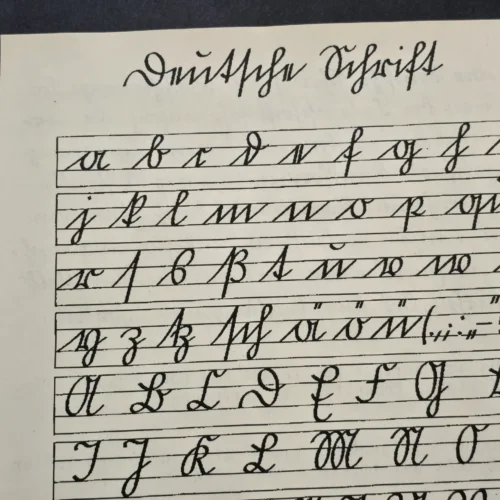 Deutsche Schrift
a b c d e f g h
j k l m n o p qu
r ſ s ß t u v w
y z tz ſch ä ö ü (.,;:„–
A B C D E F G
I J K L M N O